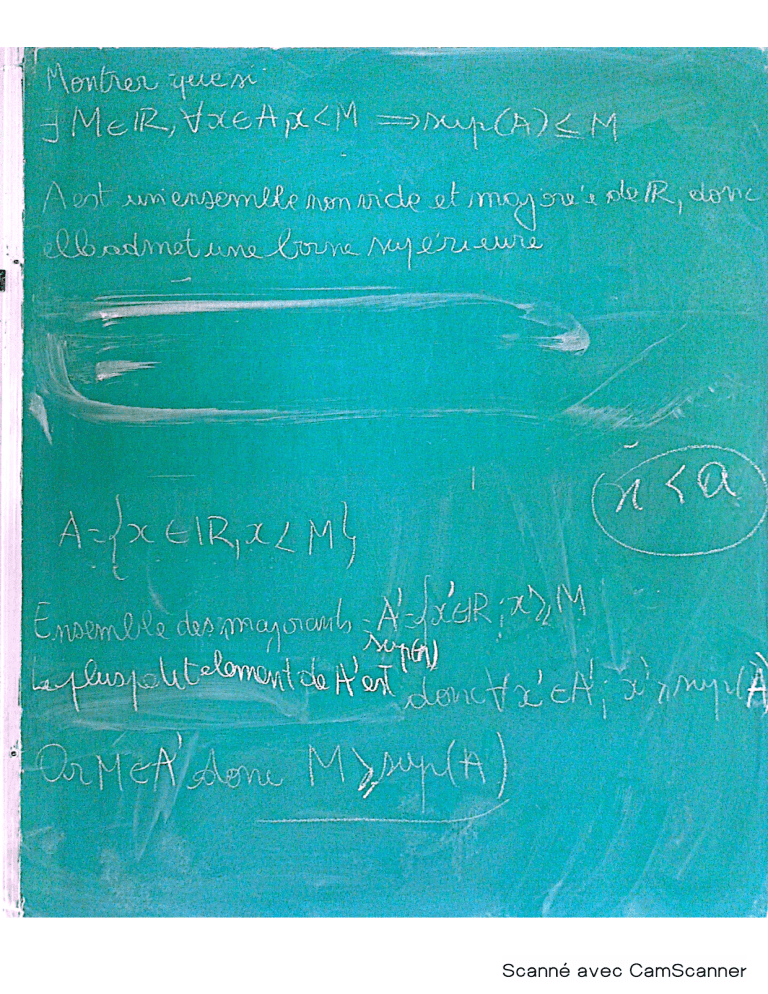 Montrer que si
∃ M ∈ ℝ, ∀x ∈ A, x < M ⟹ sup(A) ≤ M
A est un ensemble non vide et majorée de ℝ, donc
elle admet une borne supérieure
x < a
A = {x ∈ ℝ, x < M}
Ensemble des majorants = A' = {x' ∈ ℝ ; x' ⩾ M
Le plus petit element de A' est sup(A) donc ∀x' ∈ A' ; x' ⩾ sup(A)
Or M ∈ A' donc M ⩾ sup(A)
Scanné avec CamScanner